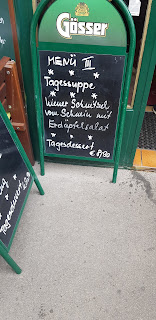 Gösser
MENÜ III
Tagessuppe
Wiener Schnitzel
vom Schwein mit
Erdäpfelsalat
Tagesdessert